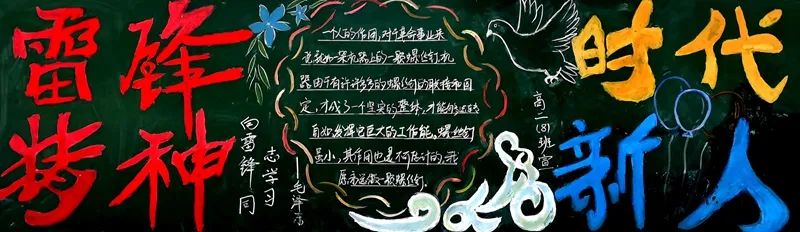 雷锋
精神
向雷锋同
志学习
——毛泽东
一个人的作用,对于革命事业来
说就如一架机器上的一颗螺丝钉,机
器由于有许许多多的螺丝钉的联接和固
定,才成了一个坚实的整体,才能够运转
自如,发挥它巨大的工作能,螺丝钉
虽小,其作用也是不可估计的,我
愿永远做一颗螺丝钉.
高二(8)班宣
时代
新人